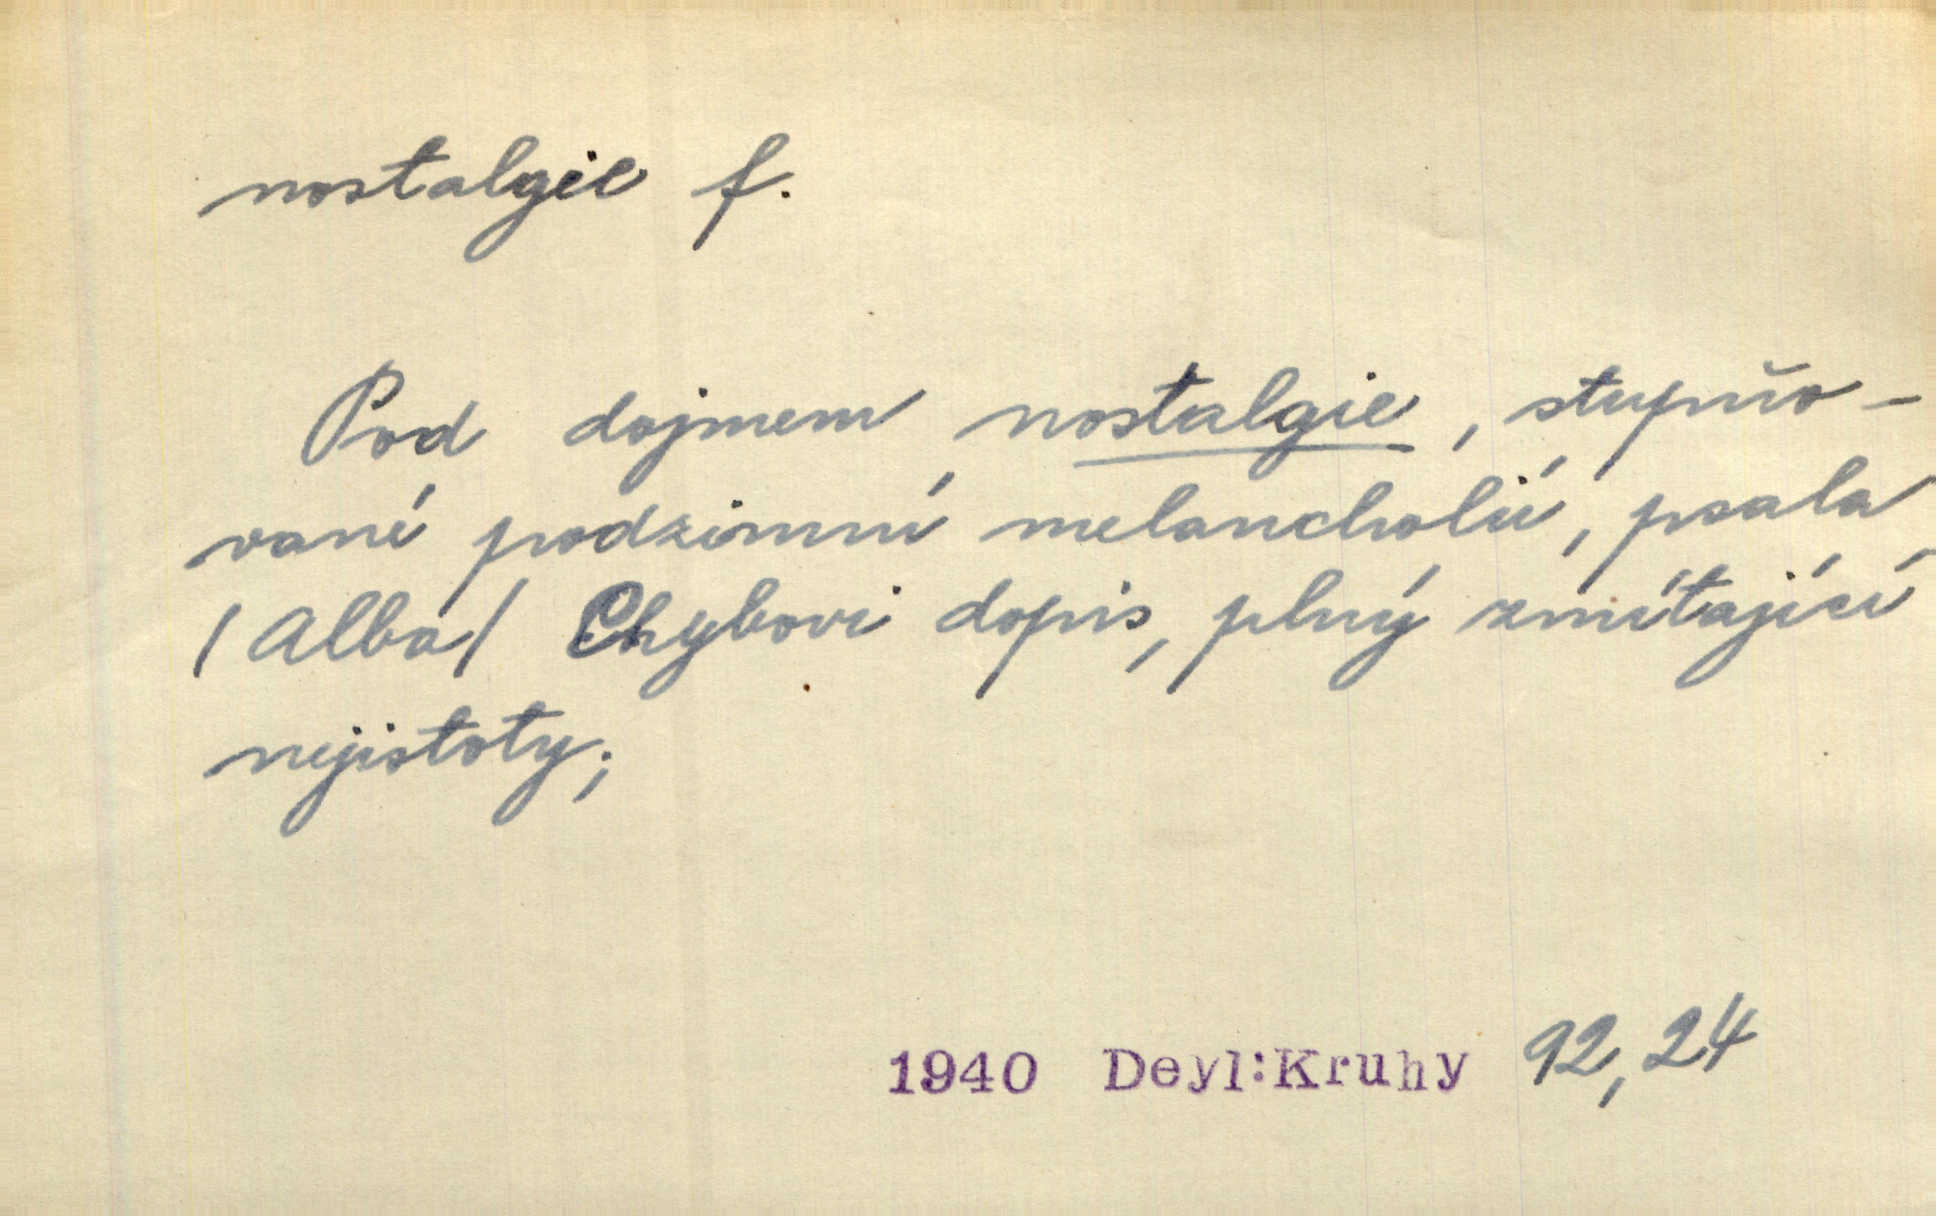 nostalgie f.
Pod dojmem nostalgie, stupňo-
vané podzimní melancholií, psala
/Alba/ Chybovi dopis, plný zmítající
nejistoty;
1940 Deyl:Kruhy 92,24